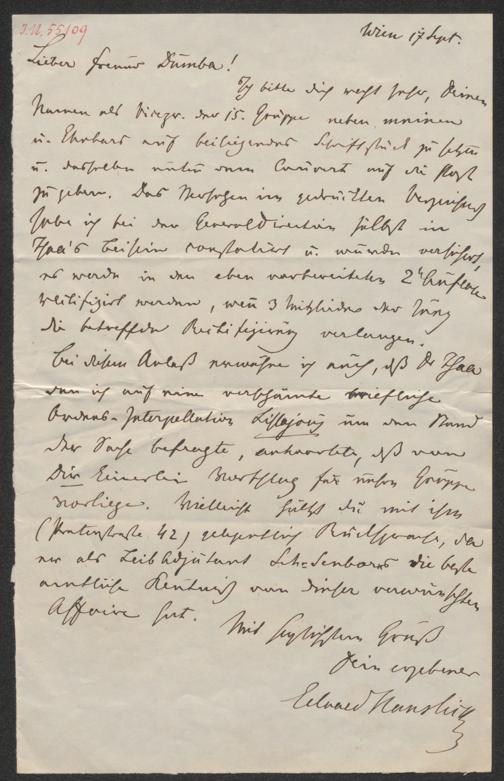 I.N. 55109
Wien 17 Sept.
Lieber Freund Dumba!
Ich bitte dich recht sehr, Deinen
Namen als Vicepr. der 15. Gruppe neben meinen
u. Ehrbars auf beiliegendes Schriftstück zu setzen
u. dasselbe unter dem Couvert auf die Post
zu geben. Das Versehen im gedruckten Verzeichniß
habe ich bei der Generaldirection selbst in
Thaa's Beisein constatirt u. wurde versichert,
es werde in der eben vorbereiteten 2t Auflage
rectifizirt werden, wenn 3 Mitglieder der Jury
die betreffende Rectifizirung verlangen.
Bei diesem Anlaß erwähne ich auch, daß Dr Thaa
den ich auf eine verschämte briefliche
Ordens-Interpellation Lissajous um den Stand
der Sache befragte, antwortete, daß von
Dir keinerlei Vorschlag für unsere Gruppe
vorliege. Vielleicht hältst du mit ihm
(Praterstraße 42) gelegentlich Rücksprache, da
er als Leibadjutant Sch-Senborns die beste
amtliche Kenntniß von dieser verwünschten
Affaire hat.
Mit herzlichstem Gruß
Dein ergebener
Eduard Hanslick